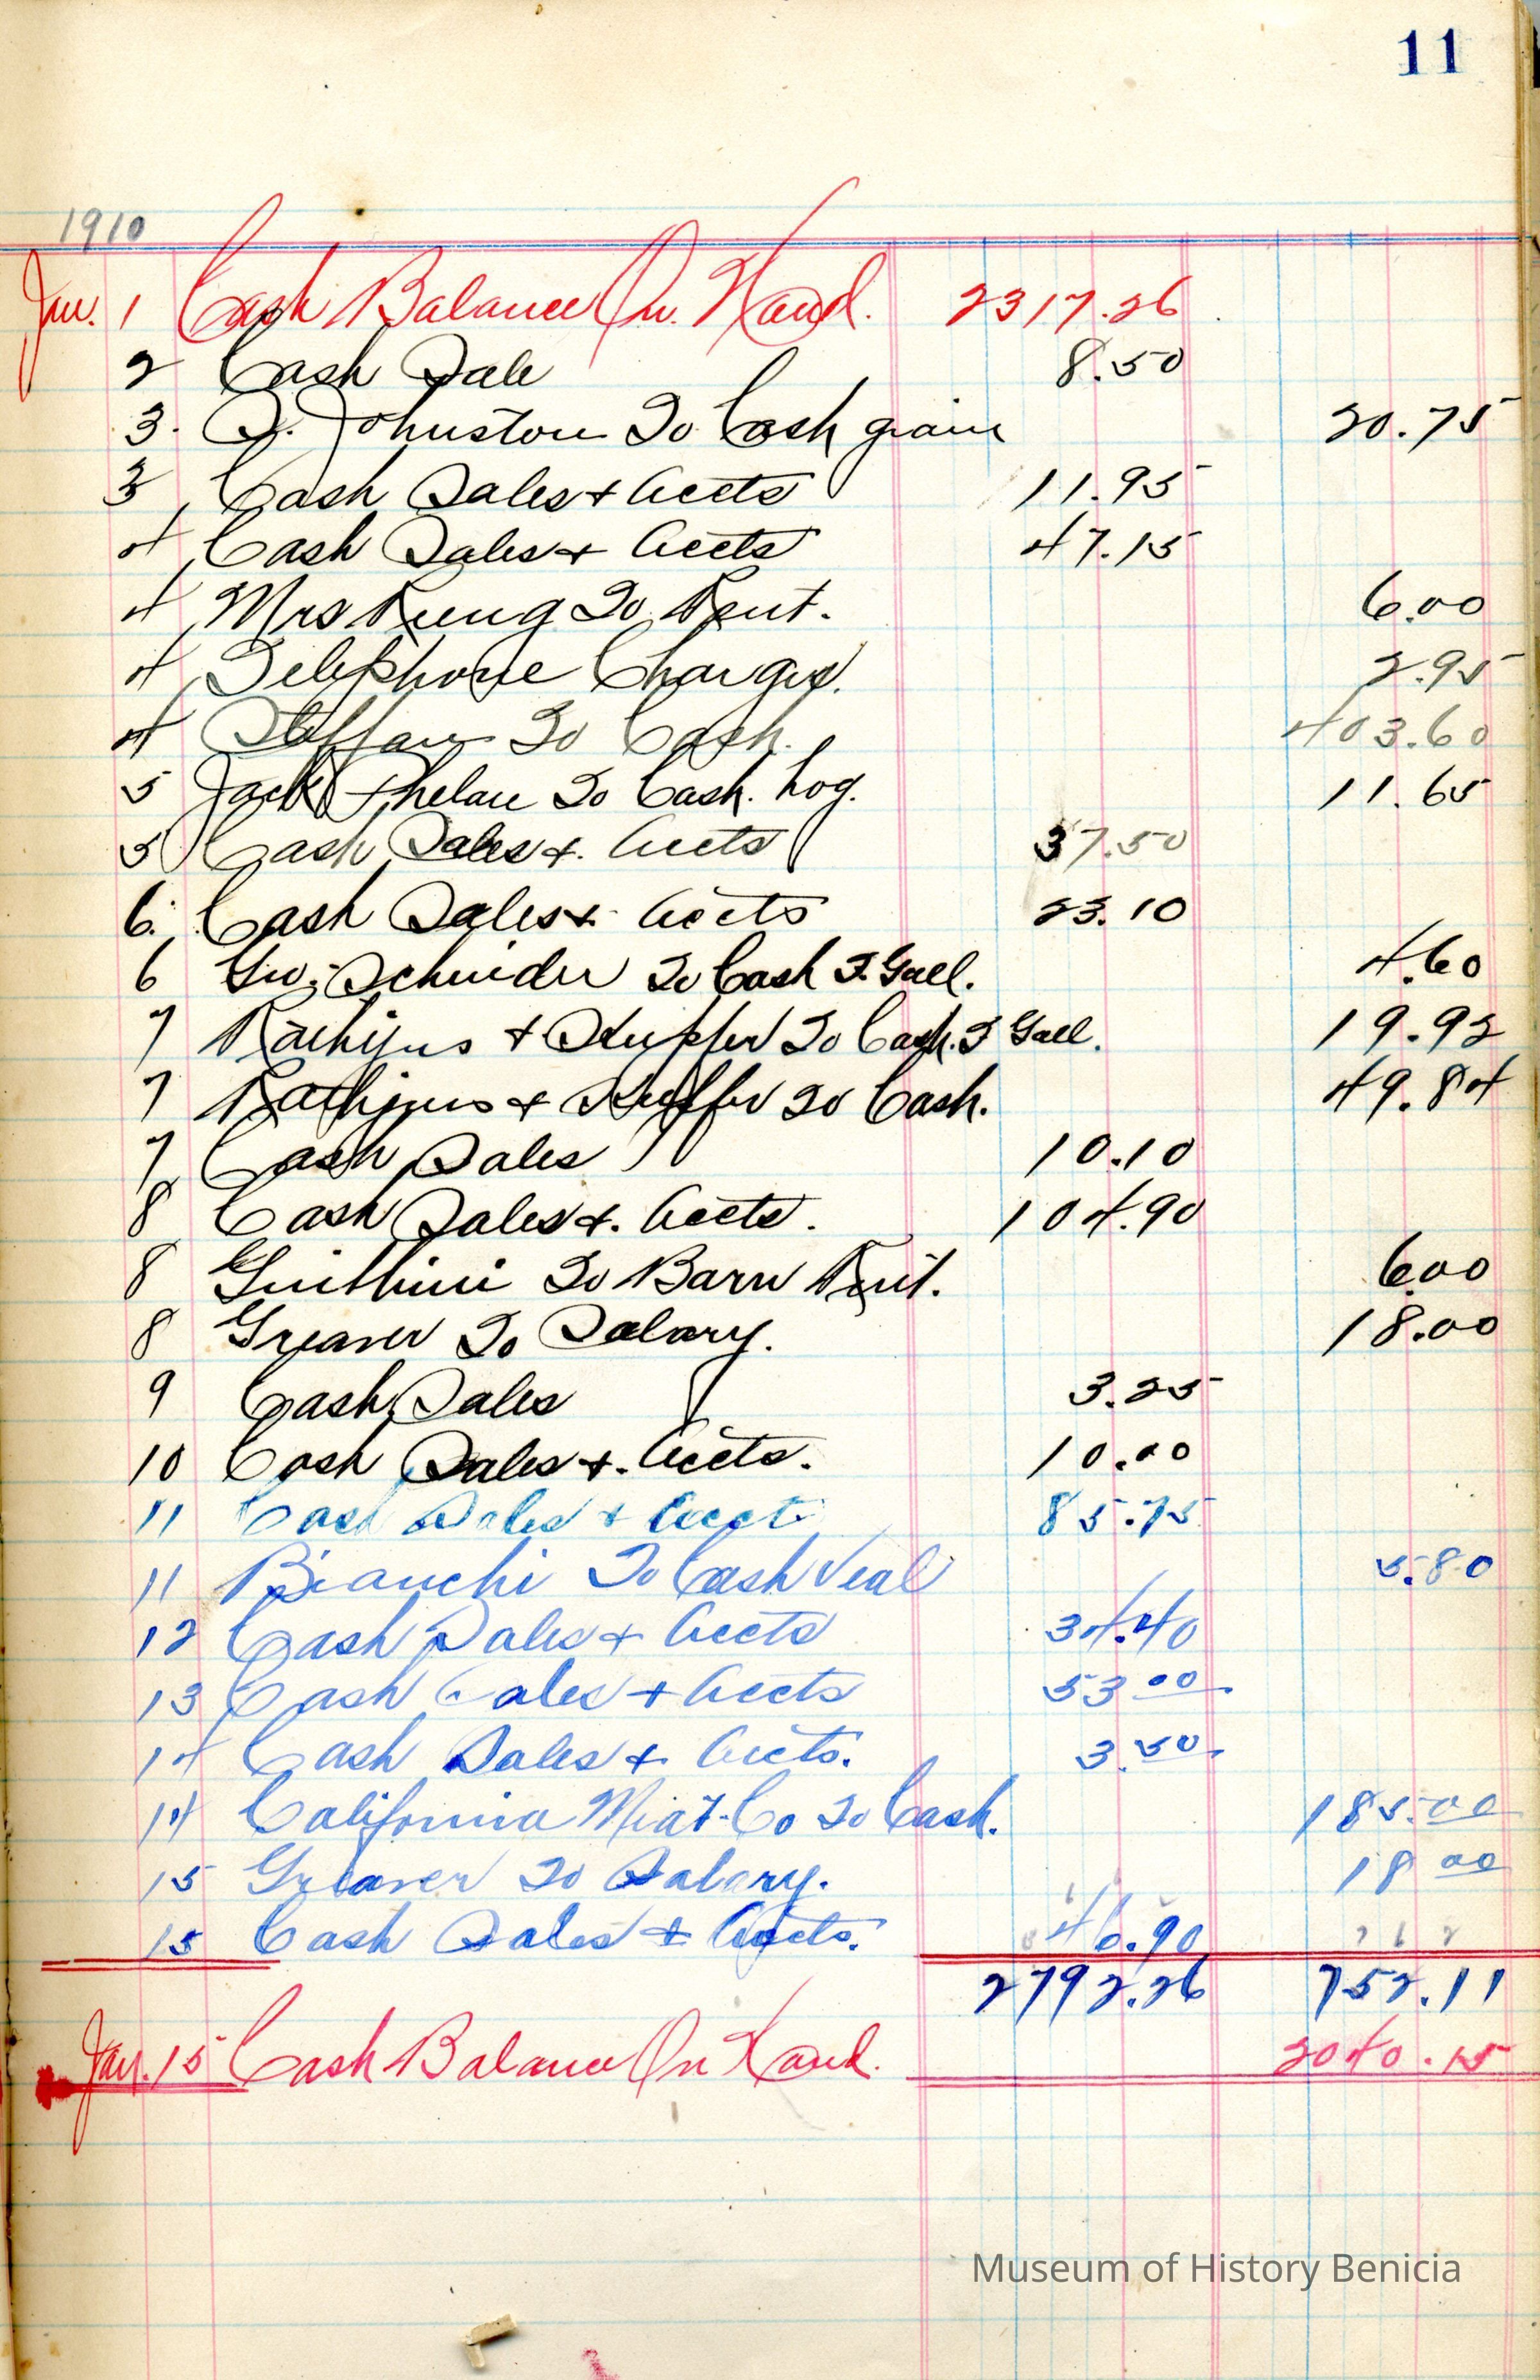 11
1910
Jan. 1 Cash Balance On Hand. 2317.26
2 Cash Sale 8.50
3. J. Johnston To Cash grain 20.75
3 Cash Sales + Accts 11.95
4 Cash Sales + Accts 47.15
4 Mrs To Rent. 6.00
4 Telephone Charges. 2.95
4 Steffan To Cash. 403.60
5 Jack Phelan To Cash. hog. 11.65
5 Cash Sales +. Accts 37.50
6. Cash Sales + Accts 23.10
6 Schnider To Cash 4.60
7 + To Cash. 19.92
7 + To Cash. 49.84
7 Cash Sales 10.10
8 Cash Sales +. Accts. 104.90
8 To Barn Rent. 6.00
8 Greaver To Salary. 18.00
9 Cash Sales 3.25
10 Cash Sales +. Accts. 10.00
11 Cash Sales + Acct. 85.75
11 Bianchi To Cash Veal 5.80
12 Cash Sales + Accts 34.40
13 Cash Sales + Accts 53 00
14 Cash Sales + Accts. 3.50
14 California Meat. Co To Cash. 185.00
15 Greaver To Salary. 18 00
15 Cash Sales + Accts. 46.90
2792.26 752.11
Jan. 15 Cash Balance On Hand. 2040.15
Museum of History Benicia